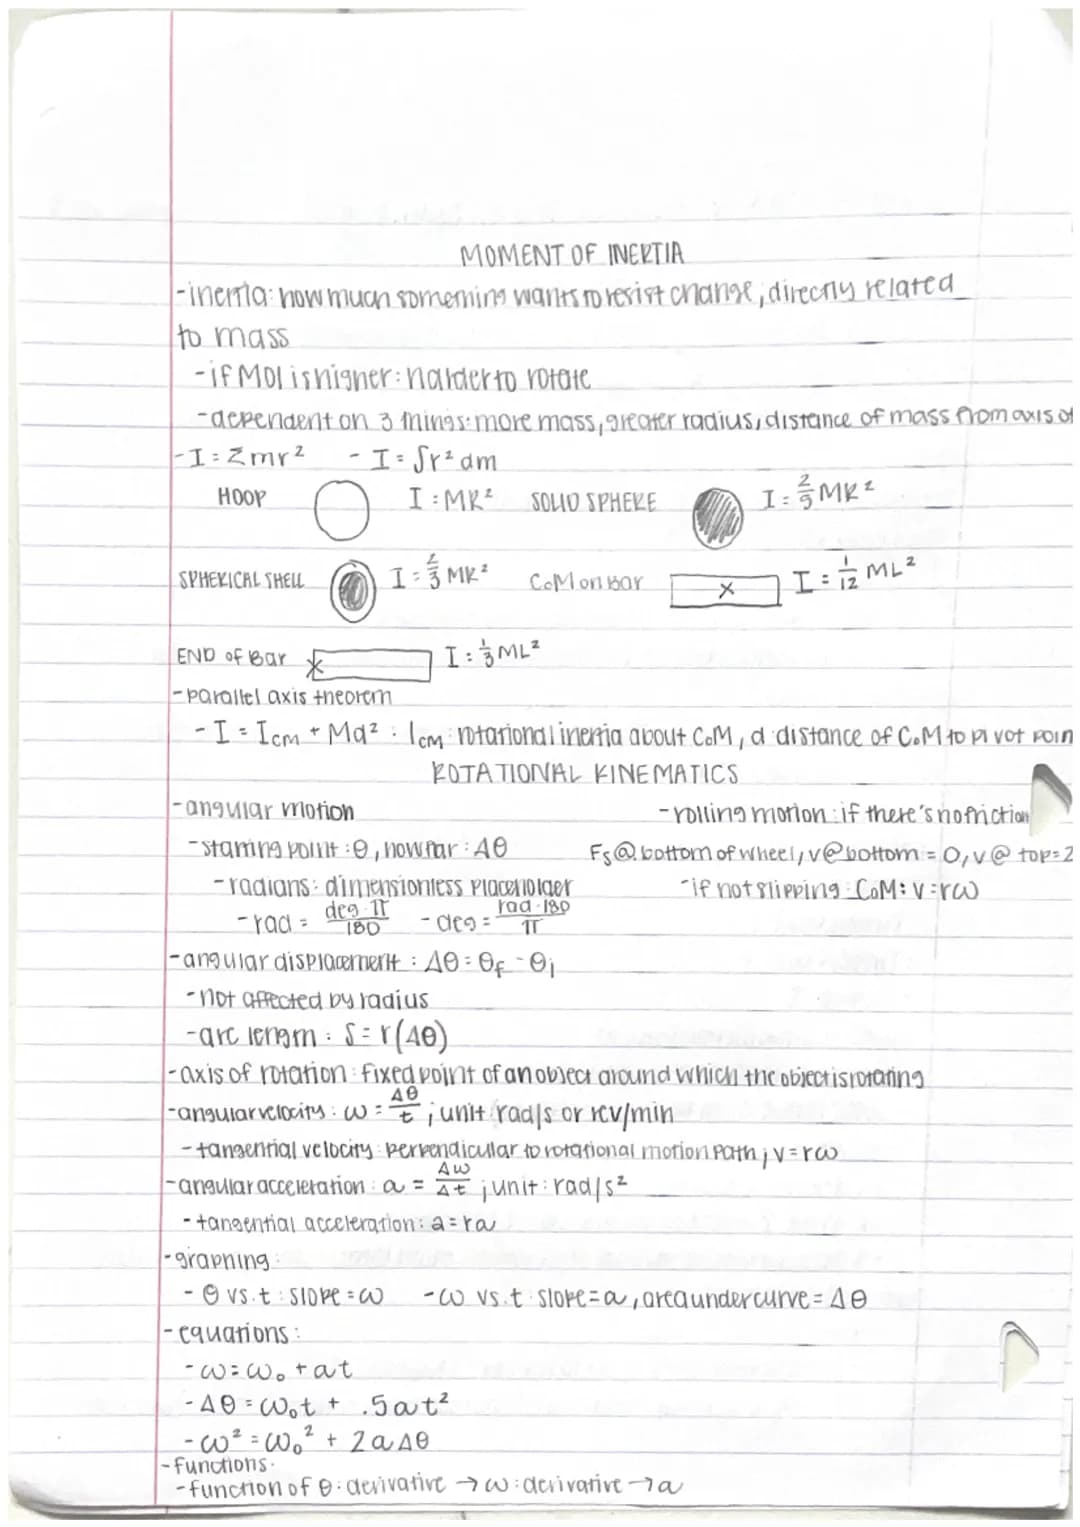 MOMENT OF INERTIA
-inertia: how much something wants to resist change, directly related
to mass
-if MOI is higher: harder to rotate
-dependent on 3 things: more mass, greater radius, distance of mass from axis of
-I = Σmr² - I = ∫r² dm
HOOP I = MR² SOLID SPHERE I = 2/5 MR²
SPHERICAL SHELL I = 2/3 MR² CoM on Bar I = 1/12 ML²
END of Bar I = 1/3 ML²
-parallel axis theorem
-I = Icm + Md² : Icm: rotational inertia about CoM, d: distance of CoM to pivot poin
ROTATIONAL KINEMATICS
-angular motion -rolling motion: if there's no friction
-starting point: θ, how far: Δθ Fs @ bottom of wheel, v@bottom = 0, v @ top = 2
-radians: dimensionless placeholder -if not slipping: CoM: v = rω
-rad = deg·π/180 -deg = rad·180/π
-angular displacement: Δθ = θf - θi
-not affected by radius
-arc length: S = r(Δθ)
-axis of rotation: fixed point of an object around which the object is rotating
-angular velocity: ω = Δθ/t ; unit: rad/s or rev/min
-tangential velocity: perpendicular to rotational motion path; v = rω
-angular acceleration: α = Δω/Δt ; unit: rad/s²
-tangential acceleration: a = rα
-graphing:
-θ vs. t: slope = ω -ω vs. t: slope = α, area under curve = Δθ
-equations:
-ω = ω₀ + αt
-Δθ = ω₀t + .5αt²
-ω² = ω₀² + 2αΔθ
-functions:
-function of θ: derivative → ω: derivative → α